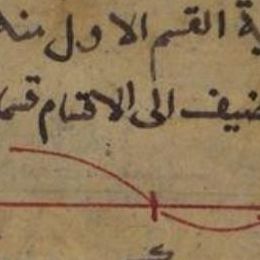 ية القسم الاول منه
ضيف الى الاقسام قسما